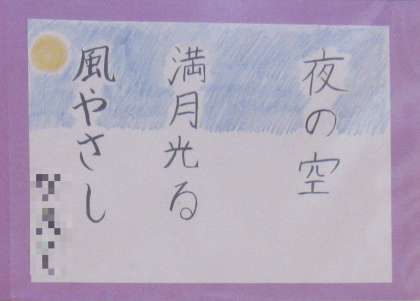 夜の空
満月光る
風やさし